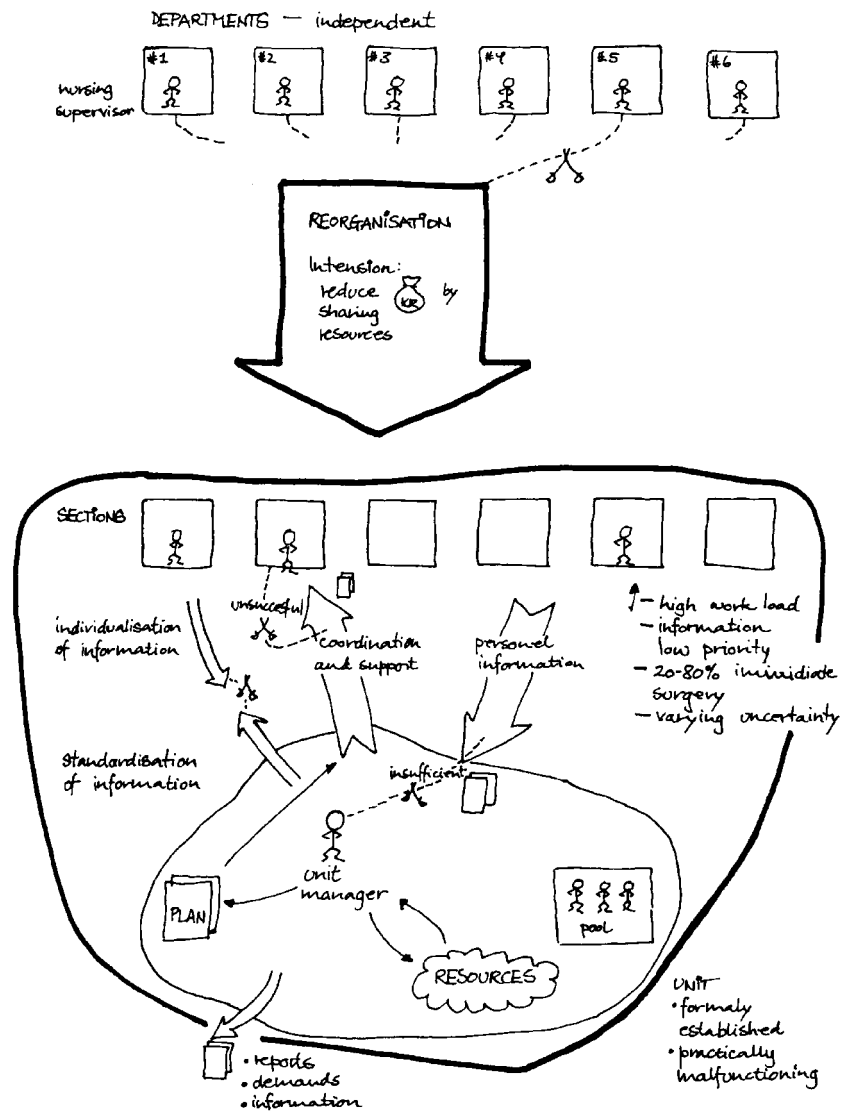 DEPARTMENTS — independent
#1
#2
#3
#4
#5
#6
nursing
supervisor
REORGANISATION
Intension:
reduce KR by
sharing
resources
SECTIONS
unsuccesful
individualisation
of information
coordination
and support
personel
information
– high work load
– information
low priority
– 20-80% immidiate
surgery
– varying uncertainty
Standardisation
of information
insufficient
unit
manager
PLAN
pool
RESOURCES
UNIT
• formaly
established
• practically
malfunctioning
• reports
• demands
• information